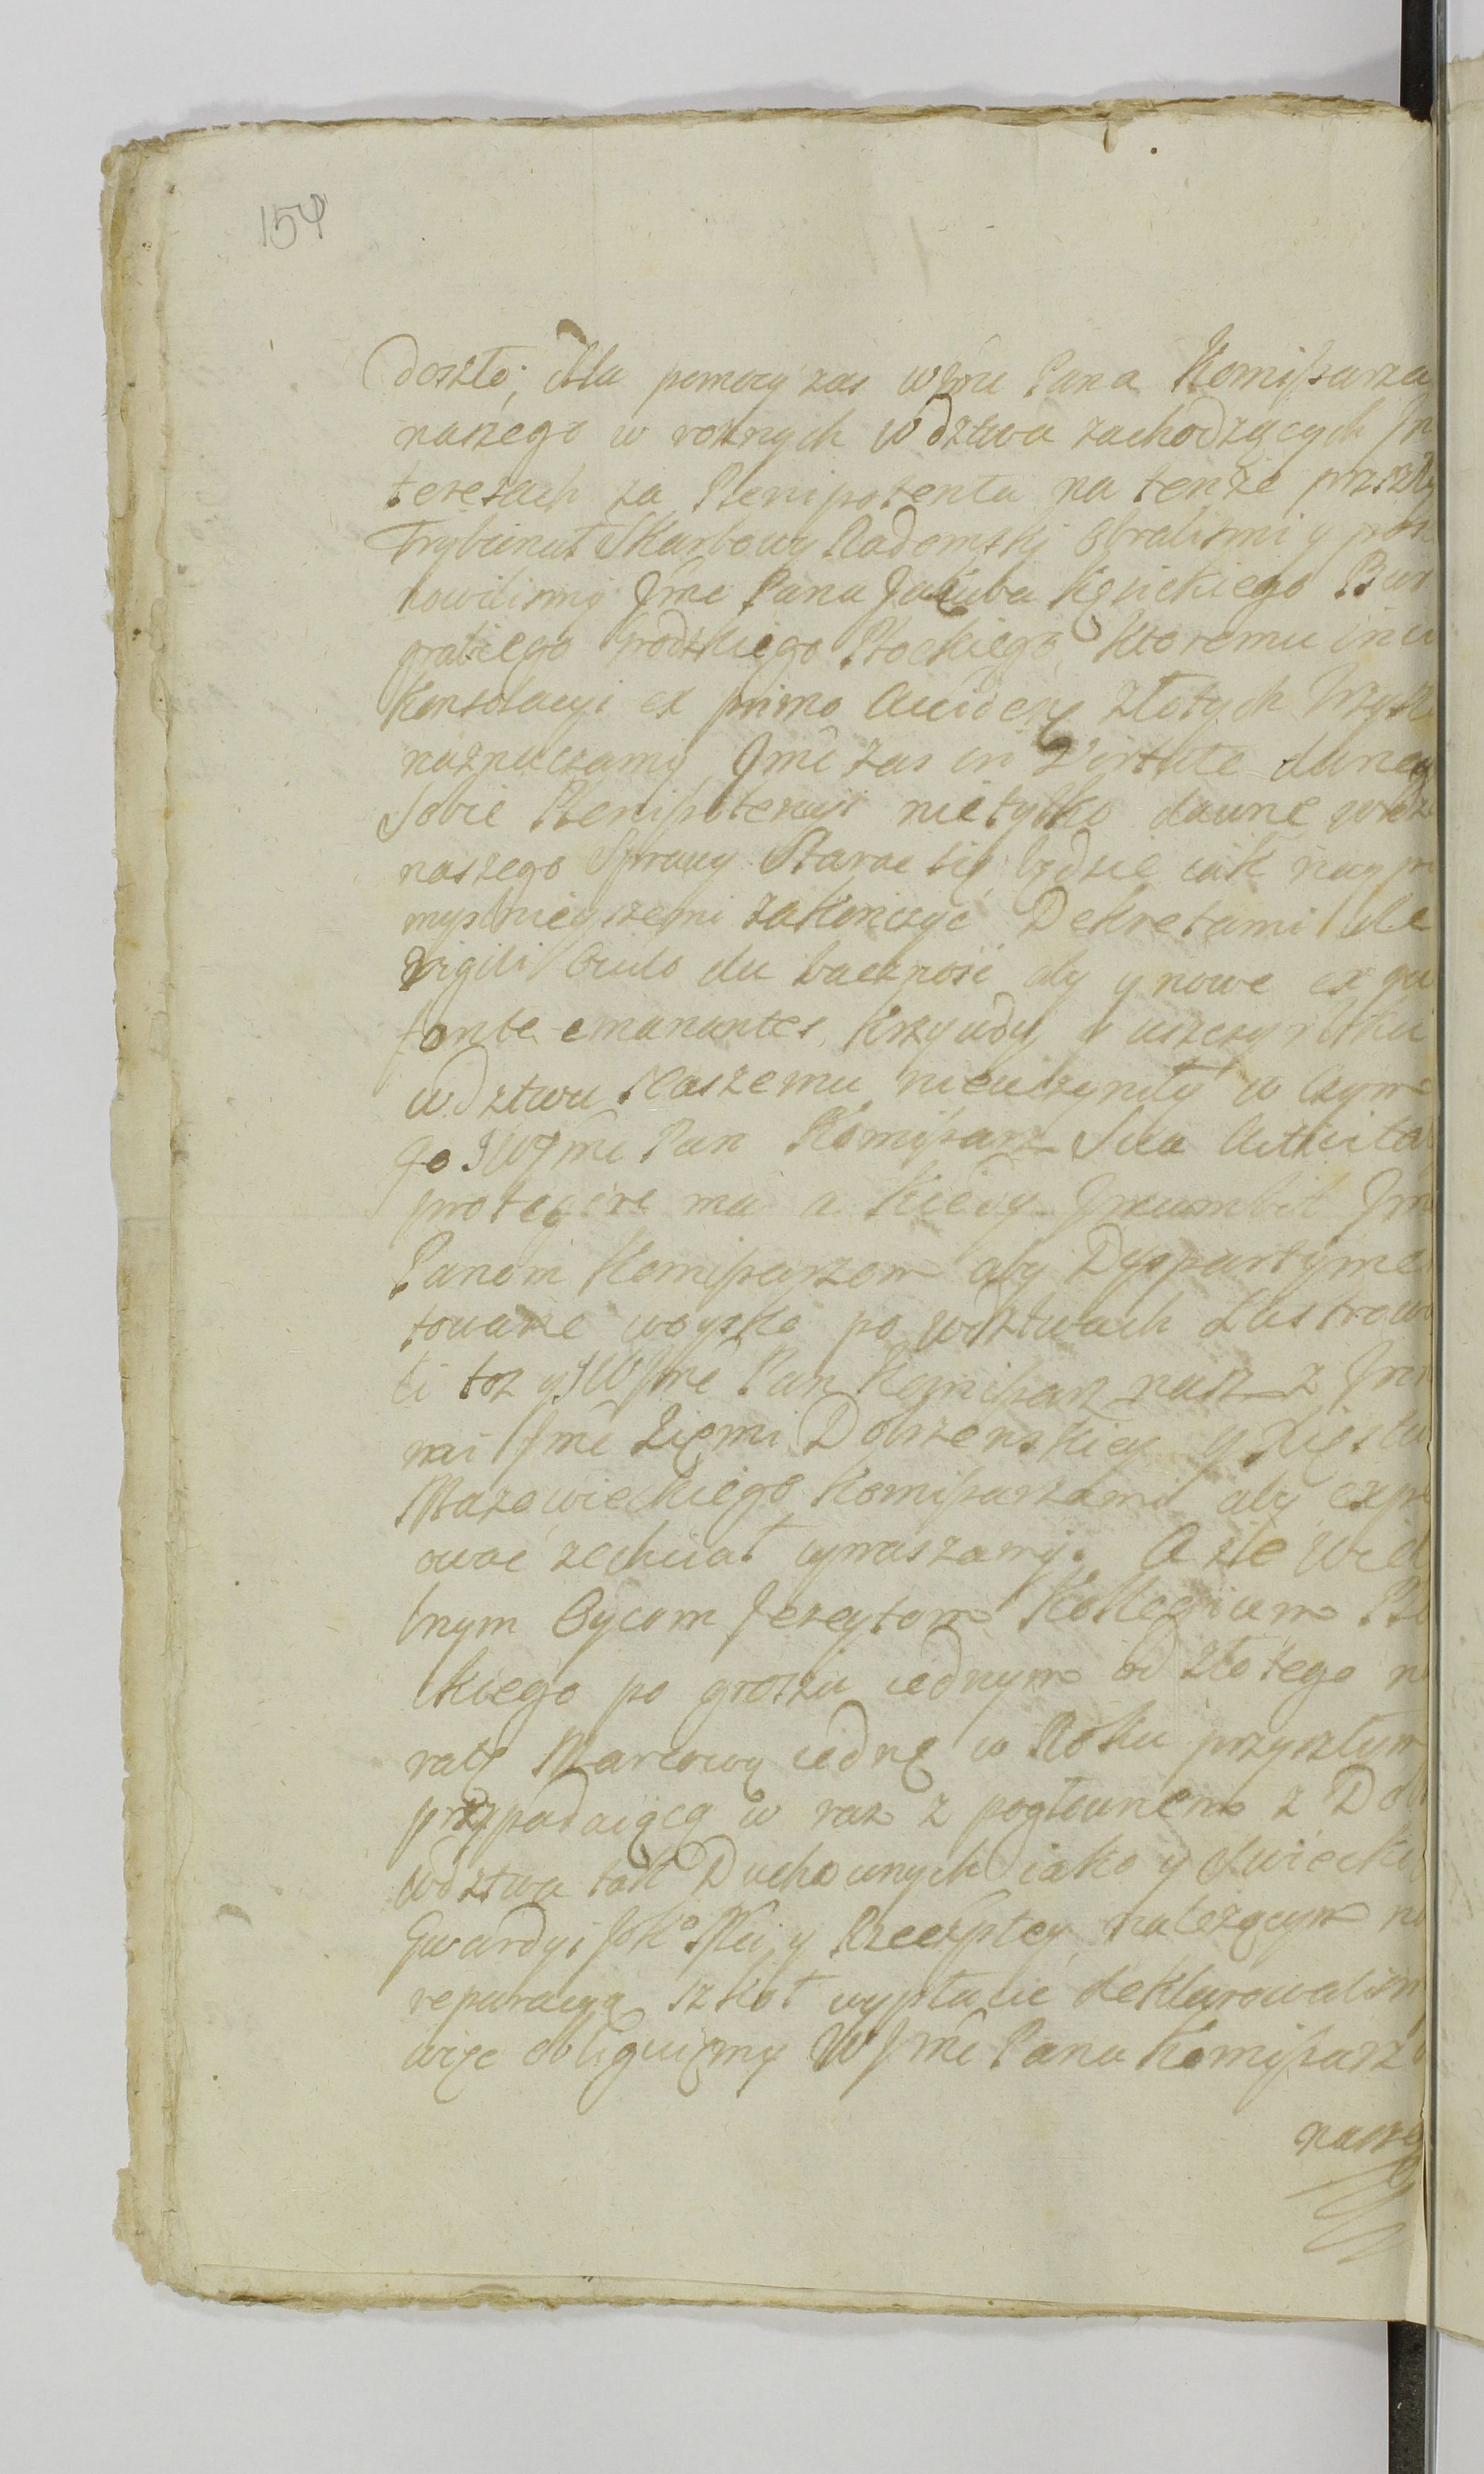 154
doszło; Dla pomocy zas WJmc Pana Komissarza
naszego w roznych wdztwa zachodzących In
teresach za Plenipotenta na tenże przszły
Trybunał Skarbowy Radomsky obralismi y posta
nowilismy Jmc Pana Jakuba Kęsickiego Bur
grabiego Grodzkiego Płockiego, ktoremu in vi
Konsolacyi ex primo Accidens złotych
naznaczamy, Jmc zas in Virtute daney
sobie Plenipotencyi nietylko dawne wdz
naszego Sprawy Starac się będzie iak nay po
myslnieyszemi zakonczyć Dekretami ale
vigili Oculo da bacznosc aby y nowe ex qu
fonte emanantes krzywdy y uszczyrbku
wdztwu Naszemu nieuczyniły w czym
go JWJmc Pan Komissarz Sua Authorita
protegere ma a kiedy Incumbit Jmc
Panom Komisarzom aby Dyspartyme
towane woysko po wdztwach Lustrowa
li toz y JWJmc Pan Komissarz nasz z Jnn
mi Jmc Ziemi Dobrzenskiey y Xięstw
Mazowieckiego Komissarzami aby expe
owac zechciał upraszamy. A że Wiel
bnym Oycom Jezuytom Kollegium Pło
ckiego po groszu iednym od złotego n
ratę Marcową iednę w Roku przyszłym
przypadaiącą w raz z pogłownem z Dob
wdztwa tak Duchownych iako y Swiecki
Gwardyi JoKo Mci y Rzeczpltey należącym na
reparacyą szkoł wypłacic deklarowalism
więc obliguiemy WJmc Pana Komissarz
naszeg